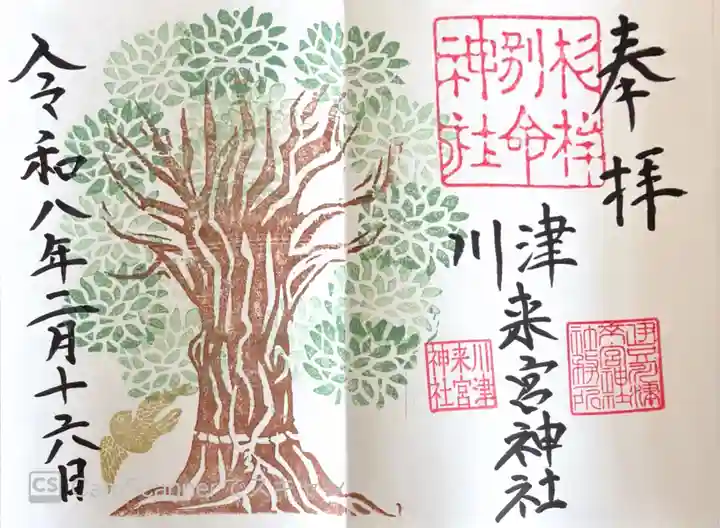 奉拝
杉桙
別命
神社
川津来宮神社
川津
来宮
神社
令和八年二月十六日
CS CamScanner